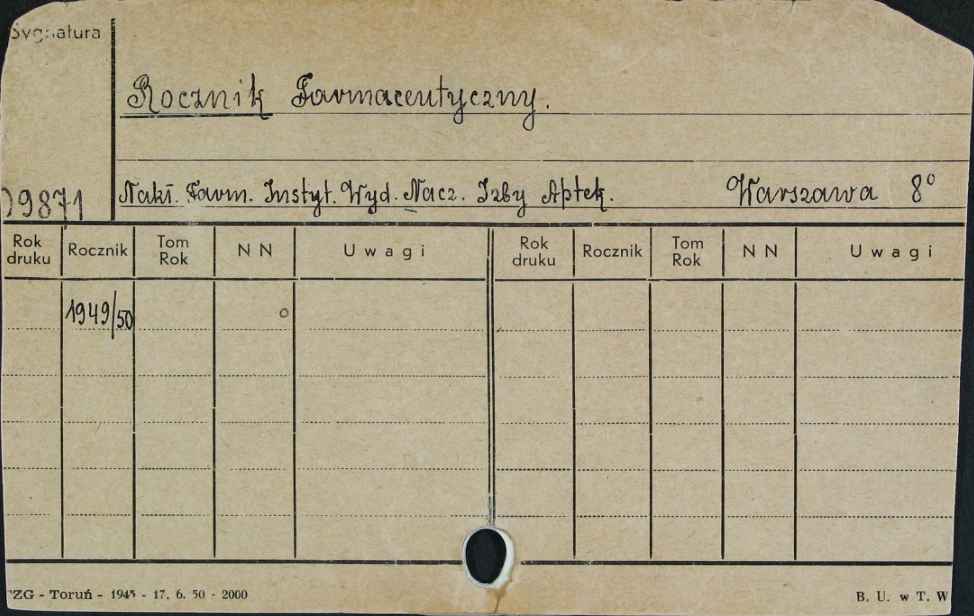 Sygnatura
Rocznik Farmaceutyczny.
09871
Nakł. Farm. Instyt. Wyd. Nacz. Izby Aptek. Warszawa 8°
Rok druku Rocznik Tom Rok N N Uwagi Rok druku Rocznik Tom Rok N N Uwagi
1949/50
ZG - Toruń - 1945 - 17. 6. 50 - 2000 B. U. w T. W